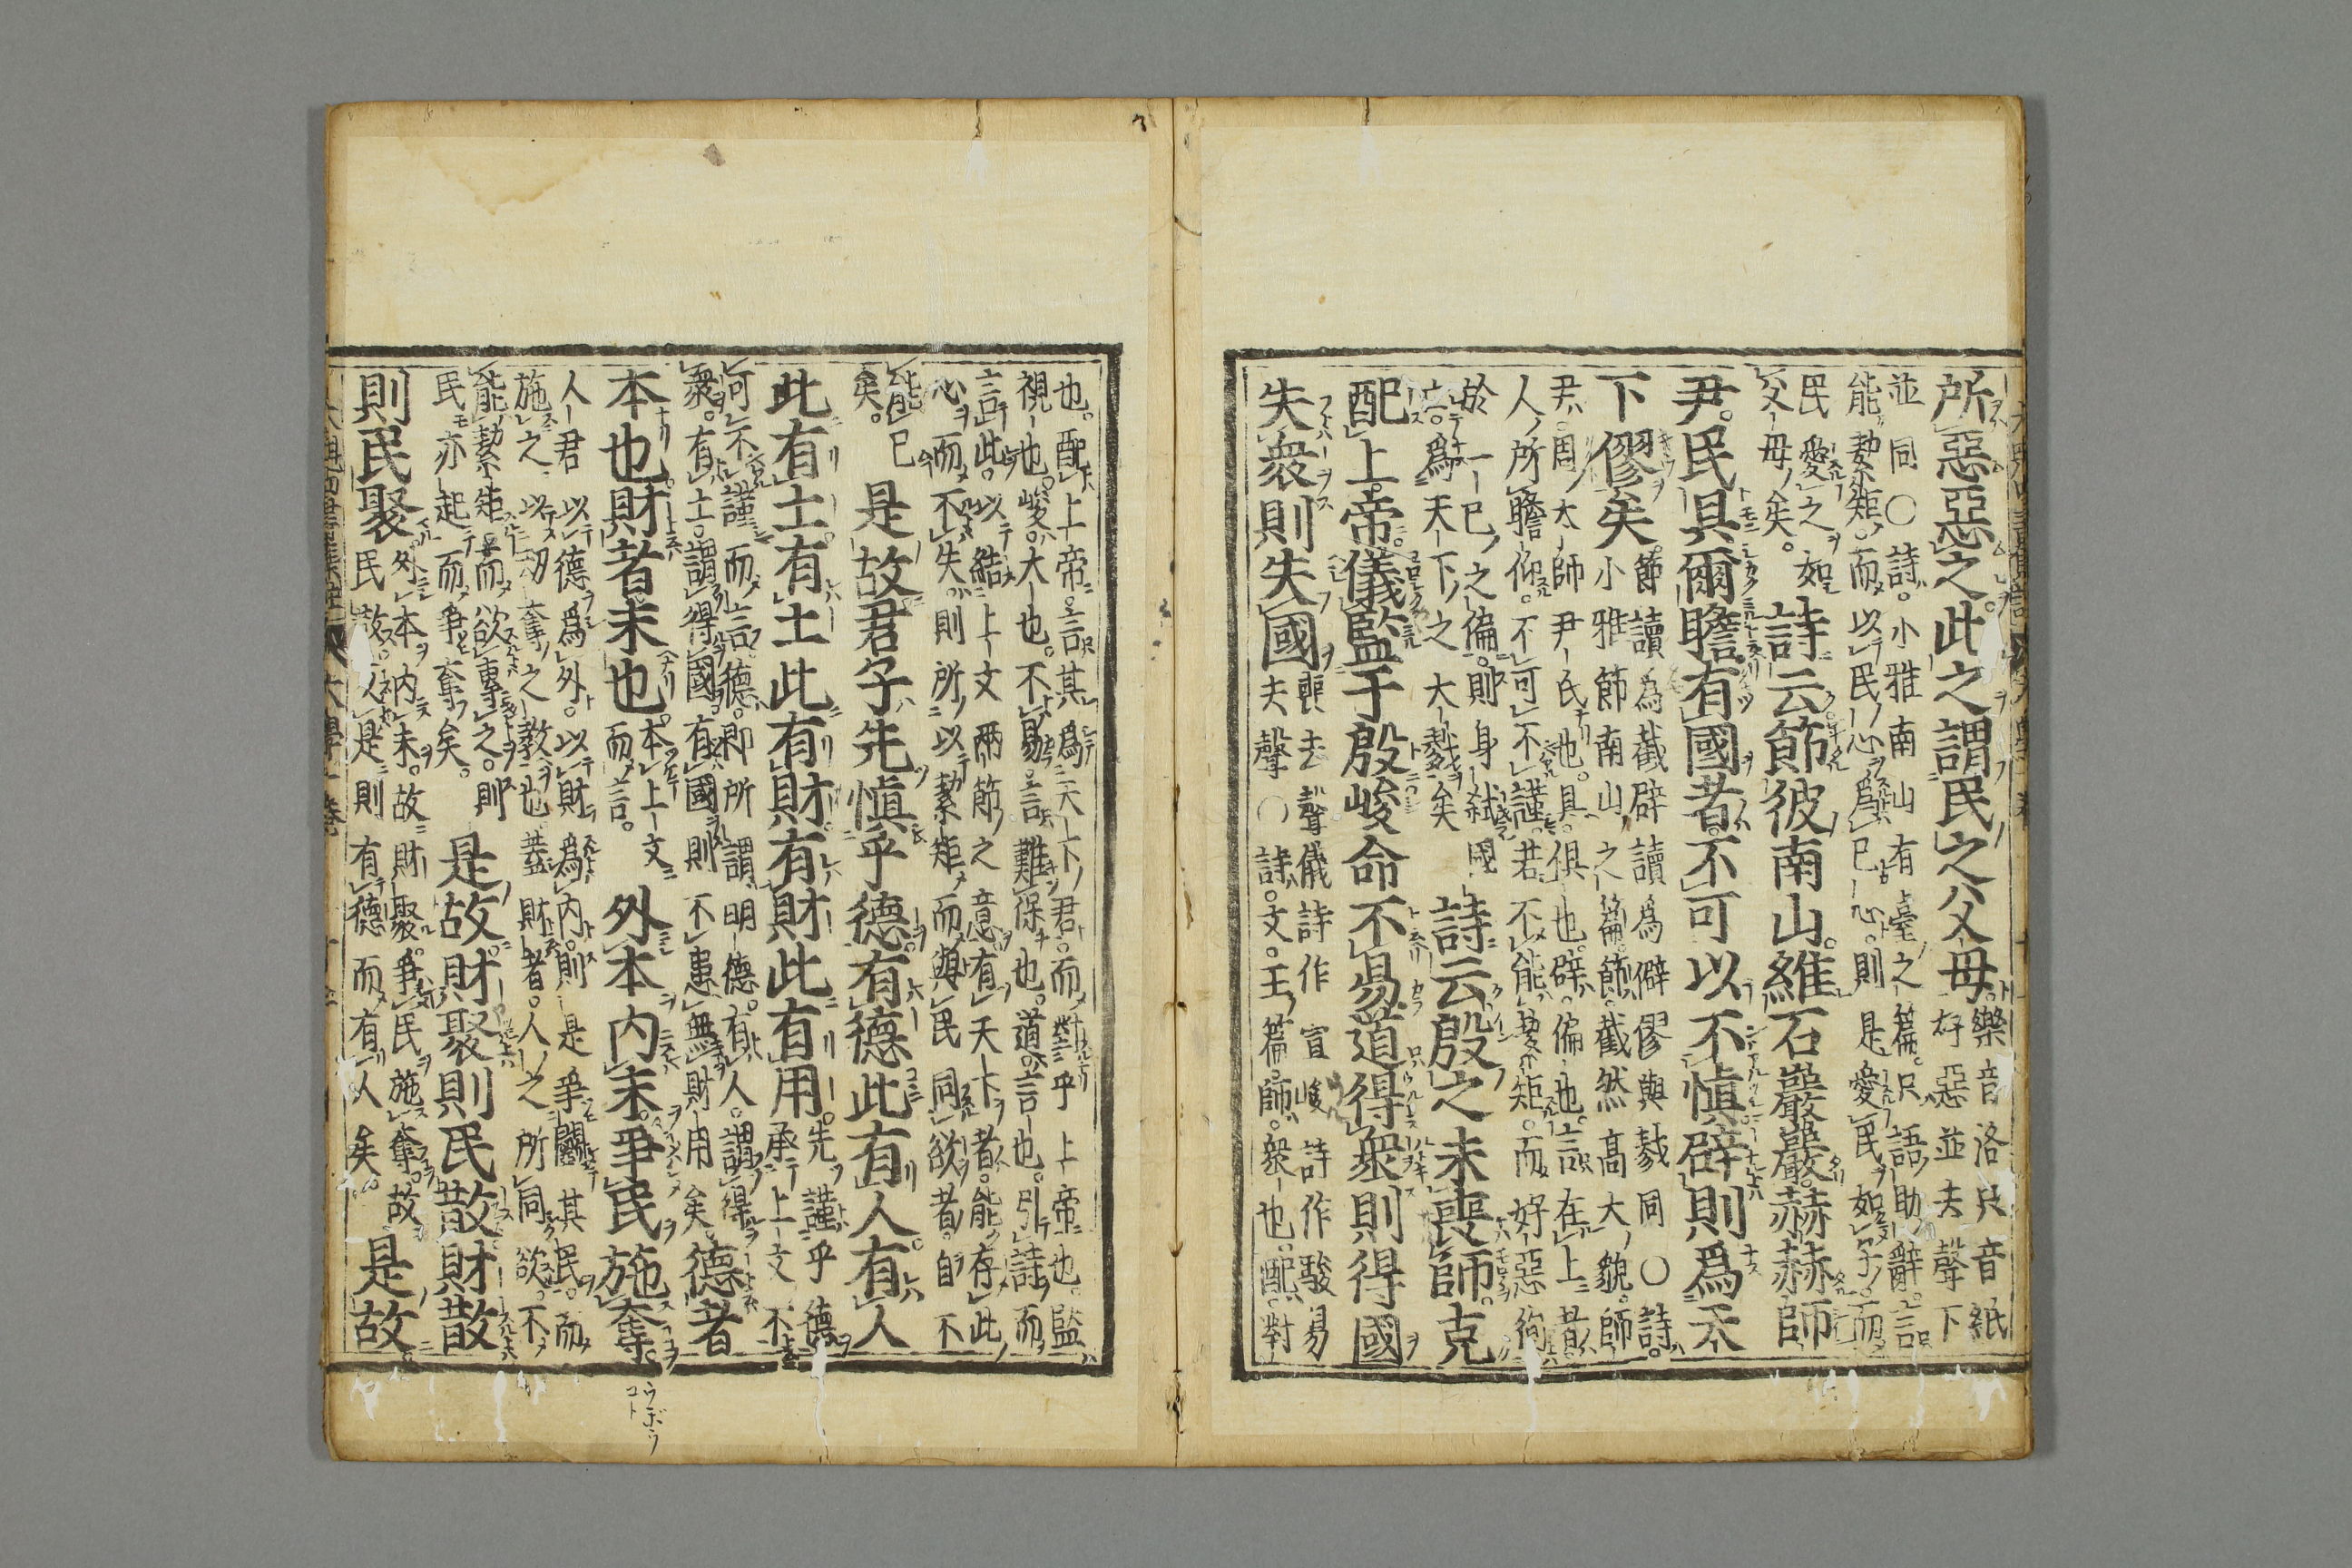 所惡惡之此之謂民之父母樂音洛只音紙
好惡並去聲下
並同〇詩小雅南山有臺之篇只語助辭言
能絜矩而以民心爲己心則是愛民如子而
民愛之如
父母矣
詩云節彼南山維石巖巖赫赫師
尹民具爾瞻有國者不可以不愼辟則爲天
下僇矣節讀為截辟讀為僻僇與戮同〇詩
小雅節南山之篇節截然高大貌師
尹周太師尹氏也具俱也辟偏也言在上者
人所瞻仰不可不謹若不能絜矩而好惡徇
於一己之偏則身弑國
亡爲天下之大戮矣
詩云殷之未喪師克
配上帝儀監于殷峻命不易道得衆則得國
失衆則失國喪去聲儀詩作宜峻詩作駿易
去聲〇詩文王篇師衆也配對
也配上帝言其爲天下君而對乎上帝也監
視也峻大也不易言難保也道言也引詩而
言此以結上文兩節之意有天下者能存此
心而不失則所以絜矩而與民同欲者自不
能已
矣
是故君子先愼乎德有德此有人有人
此有土有土此有財有財此有用先謹乎德
承上文不
可不謹而言德卽所謂明德有人謂得
衆有土謂得國有國則不患無財用矣
德者
本也財者末也本上文
而言
外本內末爭民施奪
人君以德爲外以財爲內則是爭鬭其民而
施之以刼奪之教也蓋財者人之所同欲不
能絜矩而欲專之則
民亦起而爭奪矣
是故財聚則民散財散
則民聚外本內末故財聚爭民施奪故
民散反是則有德而有人矣
是故
ウボウ
コト